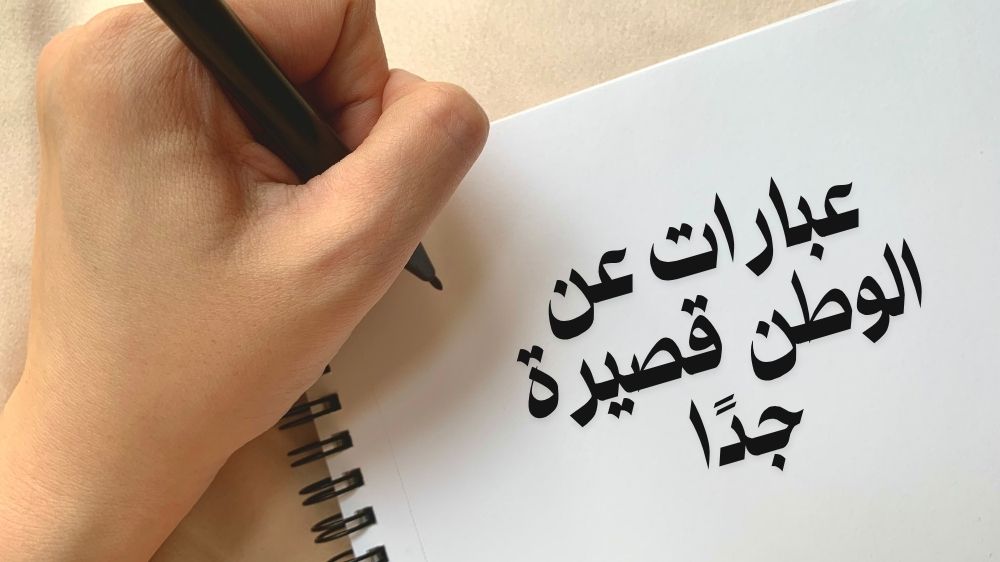 عبارات عن
الوطن قصيرة
جدًا